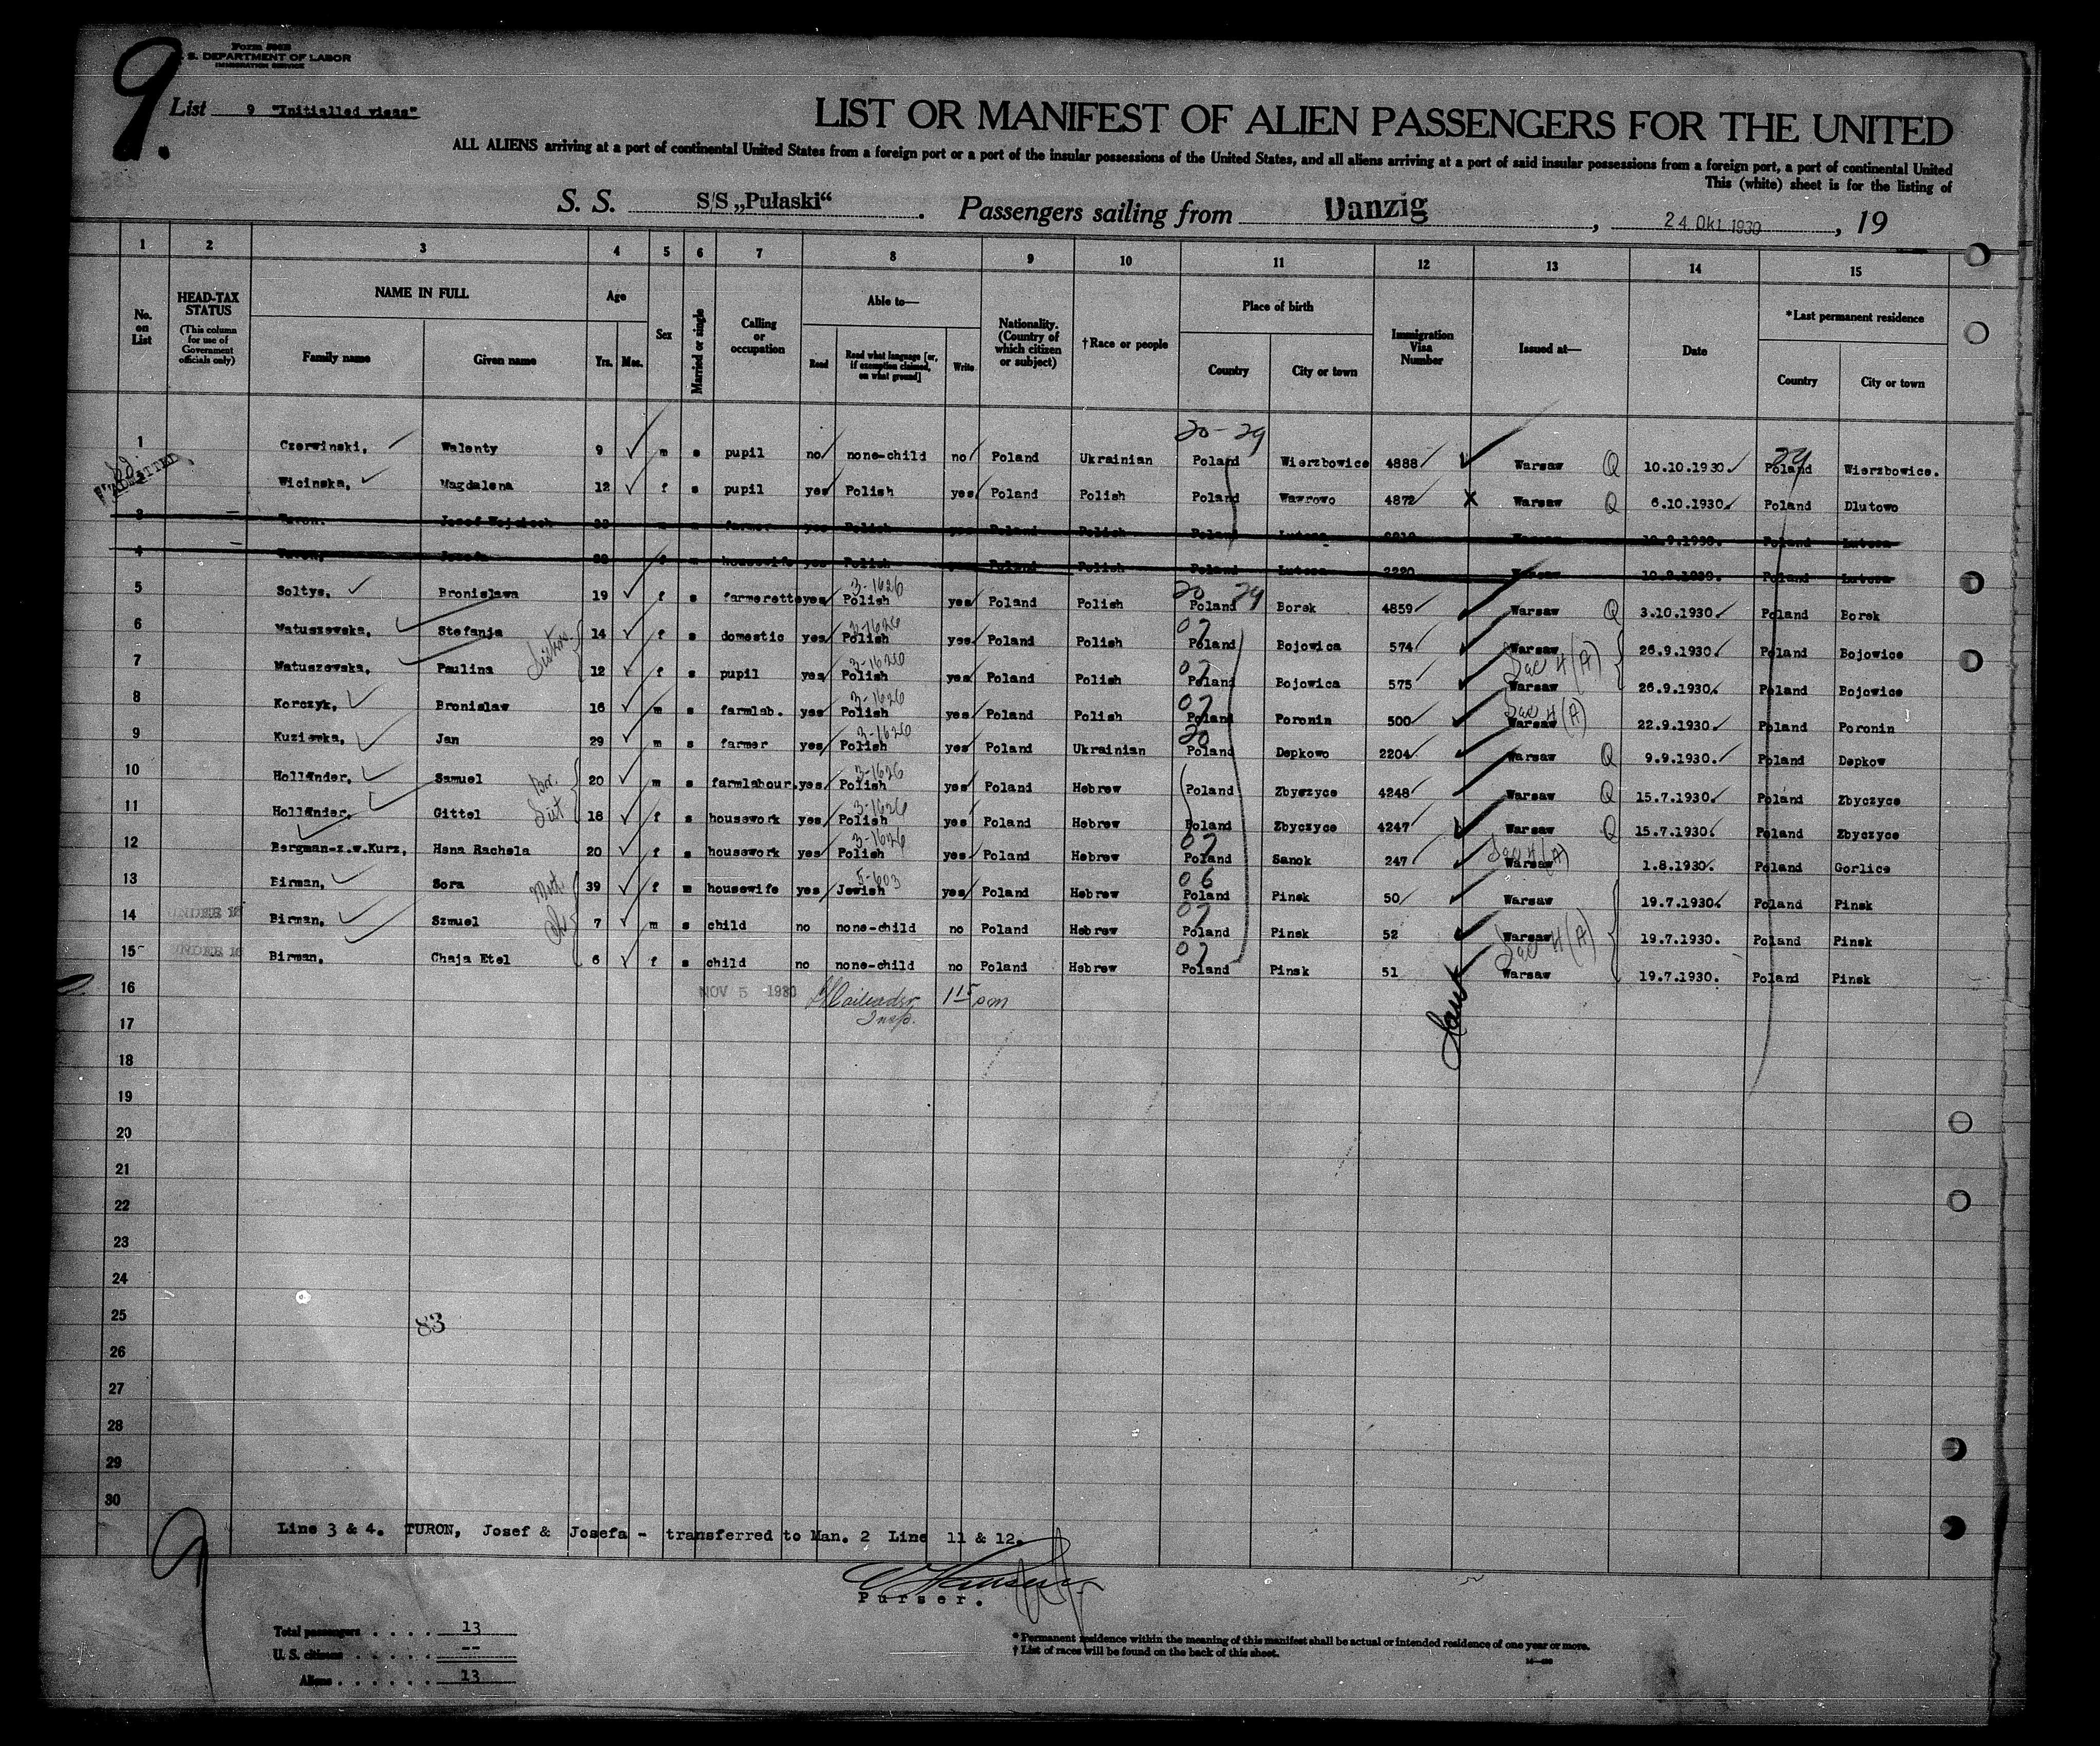 9.
Form 500B
U. S. DEPARTMENT OF LABOR
IMMIGRATION SERVICE
List 9 "Initialled visas"
LIST OR MANIFEST OF ALIEN PASSENGERS FOR THE UNITED
ALL ALIENS arriving at a port of continental United States from a foreign port or a port of the insular possessions of the United States, and all aliens arriving at a port of said insular possessions from a foreign port, a port of continental United
This (white) sheet is for the listing of
S. S. S/S „Pułaski“ . Passengers sailing from Danzig , 24. Okt. 1930 , 19
1 2 3 4 5 6 7 8 9 10 11 12 13 14 15
No. on List
HEAD-TAX STATUS
(This column for use of Government officials only)
NAME IN FULL
Family name Given name
Age
Yrs. Mos.
Sex
Married or single
Calling or occupation
Able to—
Read Read what language [or, if exemption claimed, on what ground] Write
Nationality. (Country of which citizen or subject)
†Race or people
Place of birth
Country City or town
Immigration Visa Number
Issued at—
Date
*Last permanent residence
Country City or town
20-29
1 Czerwinski, Walenty 9 m s pupil no none-child no Poland Ukrainian Poland Wierzbowice 4888 Warsaw Q 10.10.1930. Poland Wierzbowice.
ADMITTED
2 Wicinska, Magdalena 12 f s pupil yes Polish yes Poland Polish Poland Wawrowo 4872 X Warsaw Q 6.10.1930. Poland Dlutowo
3 Turon. Josef Wojciech farmer yes Polish yes Poland Polish Poland Lutcza Warsaw 10.9.1930. Poland Lutcza
4 Turon, Josefa f m housewife yes Polish Poland Polish Poland Lutcza 2220 Warsaw 10.9.1930. Poland Lutcza
3-1626 20 29
5 Soltys, Bronislawa 19 f s farmerette yes Polish yes Poland Polish Poland Borek 4859 Warsaw Q 3.10.1930. Poland Borek
3-1626 07
6 Matuszewska, Stefanja Sisters. 14 f s domestic yes Polish yes Poland Polish Poland Bojowica 574 Warsaw 26.9.1930. Poland Bojowice
3-1626 07 Sec 4 (A)
7 Matuszewska, Paulina 12 f s pupil yes Polish yes Poland Polish Poland Bojowica 575 Warsaw 26.9.1930. Poland Bojowice
3-1626 07 Sec 4 (A)
8 Korczyk, Bronislaw 16 m s farmlab. yes Polish yes Poland Polish Poland Poronin 500 Warsaw 22.9.1930. Poland Poronin
3-1626 20
9 Jan 29 m s farmer yes Polish yes Poland Ukrainian Poland Depkowo 2204 Warsaw Q 9.9.1930. Poland Depkow
3-1626
10 Holländer, Samuel Br. 20 m s farmlabour. yes Polish yes Poland Hebrew Poland Zbyszyce 4248 Warsaw Q 15.7.1930. Poland Zbyczyce
3-1626
11 Holländer, Gittel Sist 18 f s housework yes Polish yes Poland Hebrew Poland Zbyczyce 4247 Warsaw Q 15.7.1930. Poland Zbyczyce
3-1626 07 Sec 4 (A)
12 Bergman-z.w.Kurz, Hena Rachela 20 f s housework yes Polish yes Poland Hebrew Poland Sanok 247 Warsaw 1.8.1930. Poland Gorlice
5-603 06
13 Birman, Sora Mot. 39 f m housewife yes Jewish yes Poland Hebrew Poland Pinsk 50 Warsaw 19.7.1930. Poland Pinsk
07
14 UNDER 16 Birman, Szmuel Ch 7 m s child no none-child no Poland Hebrew Poland Pinsk 52 Warsaw 19.7.1930. Poland Pinsk
07 Sec 4 (A)
15 UNDER 16 Birman, Chaja Etel 6 f s child no none-child no Poland Hebrew Poland Pinsk 51 Warsaw 19.7.1930. Poland Pinsk
16 NOV 5 1930 1 15 pm
Insp.
17
18
19
20
21
22
23
24
25
83
26
27
28
29
30
Line 3 & 4. TURON, Josef & Josefa - transferred to Man. 2 Line 11 & 12.
9
Purser.
Total passengers . . . . . 13
U. S. citizens . . . . . --
Aliens . . . . . . 13
* Permanent residence within the meaning of this manifest shall be actual or intended residence of one year or more.
† List of races will be found on the back of this sheet.